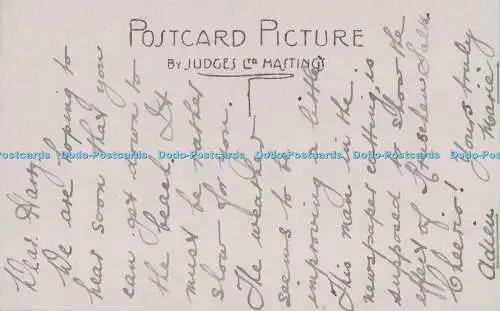 POSTCARD PICTURE
BY JUDGES LTD HASTINGS
Dear Harry
We are hoping to
hear soon that you
can get down to
the beach. It
must be rather
slow for you.
The weather
seems to be
improving a little
This man in the
newspaper cutting is
supposed to show the
effect of Kruschen Salts.
Cheerio! Yours truly
Adieu
Dodo-Postcards Dodo-Postcards Dodo-Postcards Dodo-Postcards Dodo-Postcards